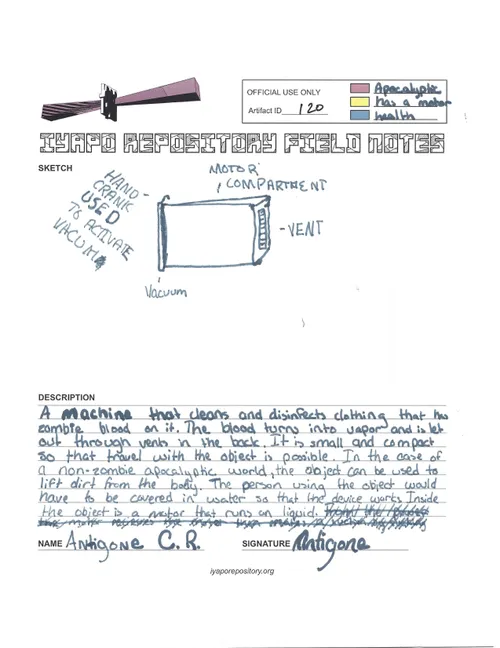 OFFICIAL USE ONLY
Artifact ID 120
Apocalyptic
has a motor
health
IYAPO REPOSITORY FIELD NOTES
SKETCH
HAND-
CRANK
USED
TO ACTIVATE
VACUUM
MOTOR
COMPARTMENT
-VENT
Vacuum
DESCRIPTION
A machine that cleans and disinfects clothing that has
zombie blood on it. The blood turns into vapor and is let
out through vents in the back. It is small and compact
so that travel with the object is possible. In the case of
a non-zombie apocalyptic world, the object can be used to
lift dirt from the body. The person using the object would
have to be covered in water so that the device works. Inside
the object is a motor that runs on liquid.
NAME Antigone C.R. SIGNATURE Antigone
iyaporepository.org